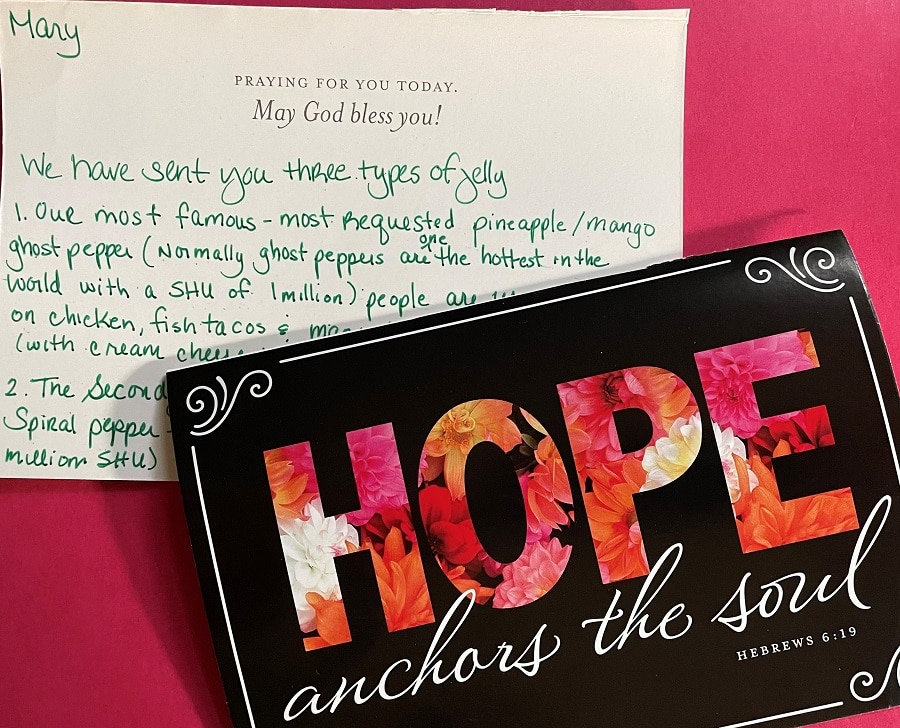 Mary
PRAYING FOR YOU TODAY.
May God bless you!
We have sent you three types of jelly
1. Our most famous - most requested pineapple/mango
ghost pepper (Normally ghost peppers are one the hottest in the
world with a SHU of 1 million) people are
on chicken, fish tacos &
(with cream
2. The Second
Spiral pepper
million SHU)
HOPE
anchors the soul
HEBREWS 6:19